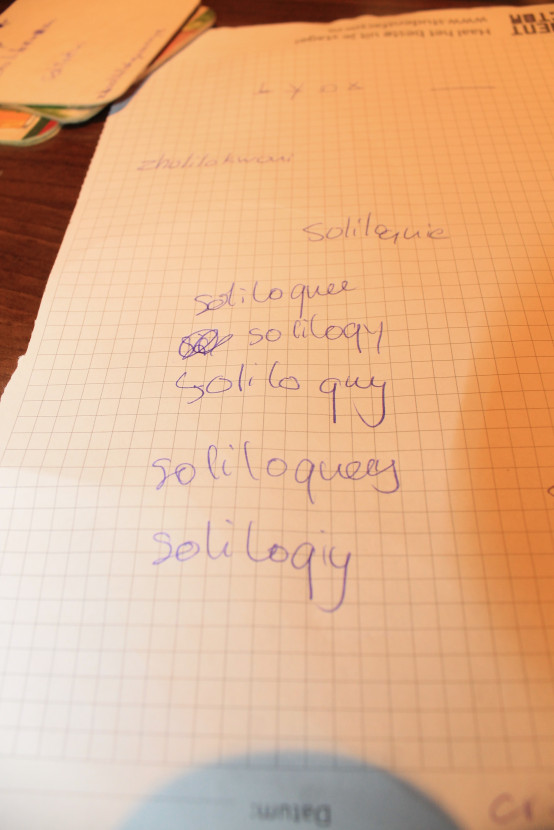 Haal het beste uit je stage!
www.studenten
zholilokwoni
Soliloquie
soliloquee
solilogy
soliloquy
soliloqueey
soliloqiy
Datum: